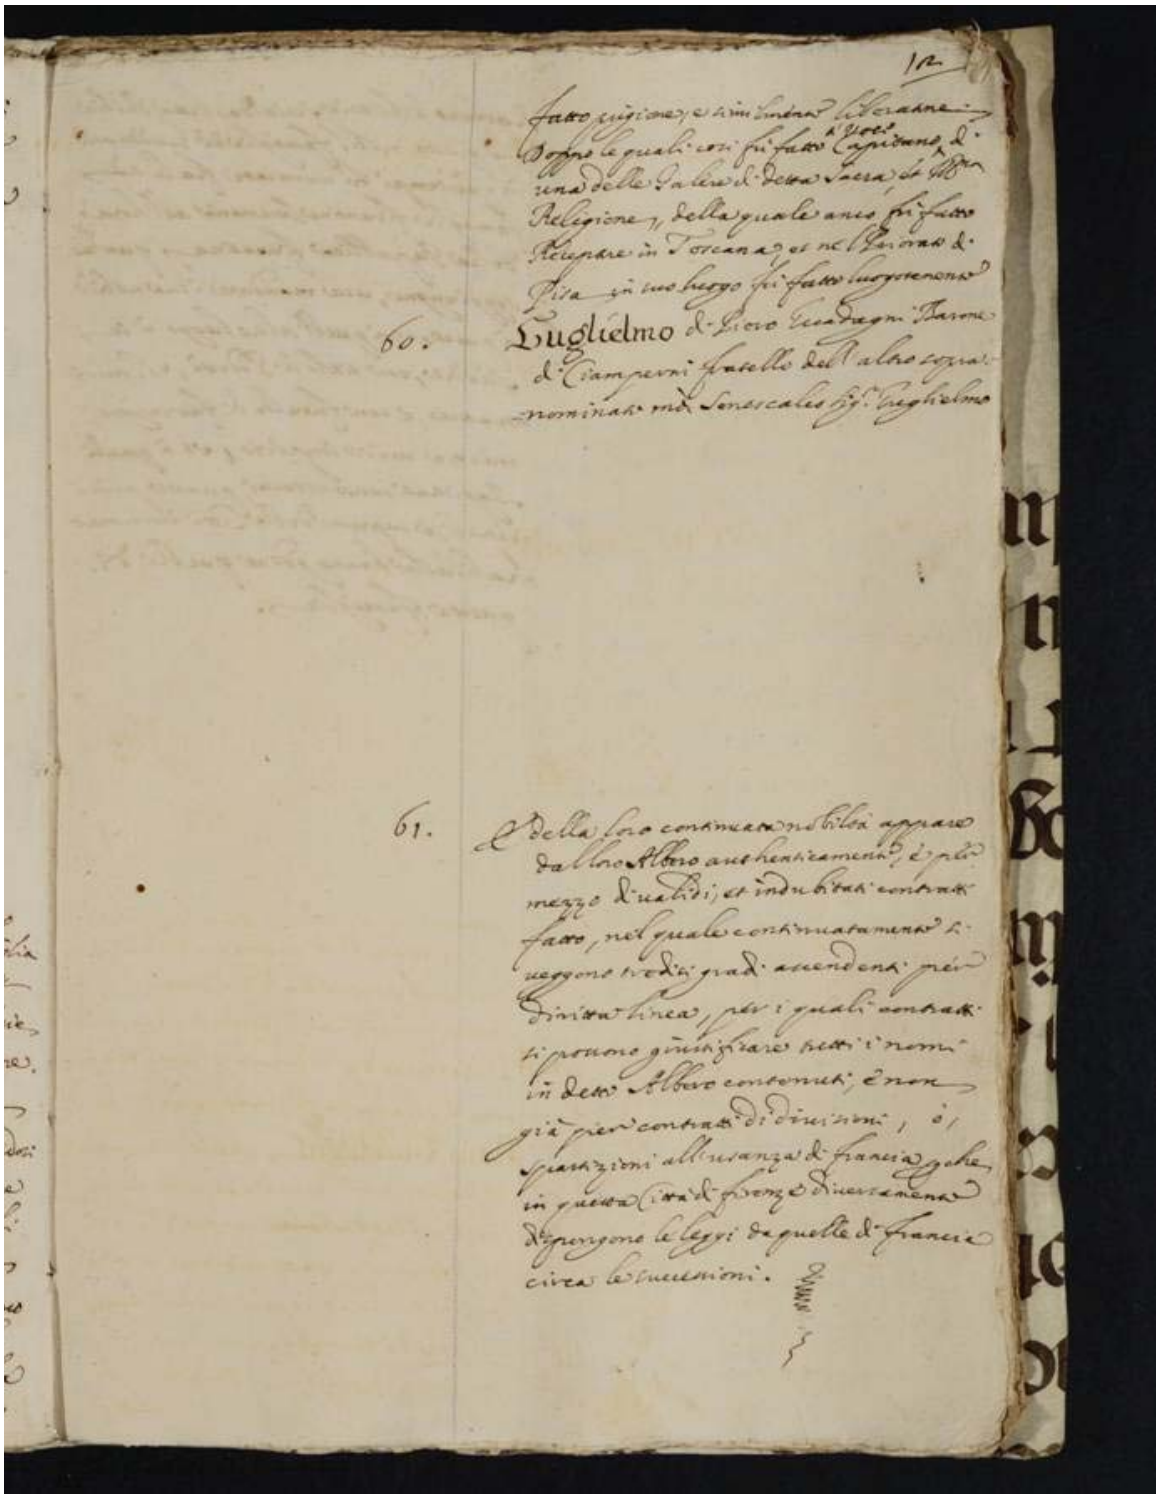 12
fatto prigione, e similmente liberatone
Doppo le quali cose fù fatto Capitano di
una delle Galere di detta Sacra, et Ill.ma
Religione, della quale anco fù fatto
Ricepitore in Toscana, et nel Priorato di
Pisa in suo luogo fù fatto luogotenente
60. Guglielmo di Piero Guadagni Barone
di Ciamperni fratello dell'altro sopra
nominato Senescalco Sig.r Guglielmo
61. E della loro continuata nobiltà appare
dal loro Albero authenticamente, è per
mezzo di validi, et indubitati contratti
fatto, nel quale continuatamente si
veggono tredici gradi ascendenti per
diritta linea, per i quali contratti
si possono giustificare tutti i nomi
in detto Albero contenuti, è non
già per contratti di divisioni, ò,
spartizioni all'usanza di francia, che
in questa Città di firenze diversamente
dispongono le leggi da quelle di francia
circa le successioni.